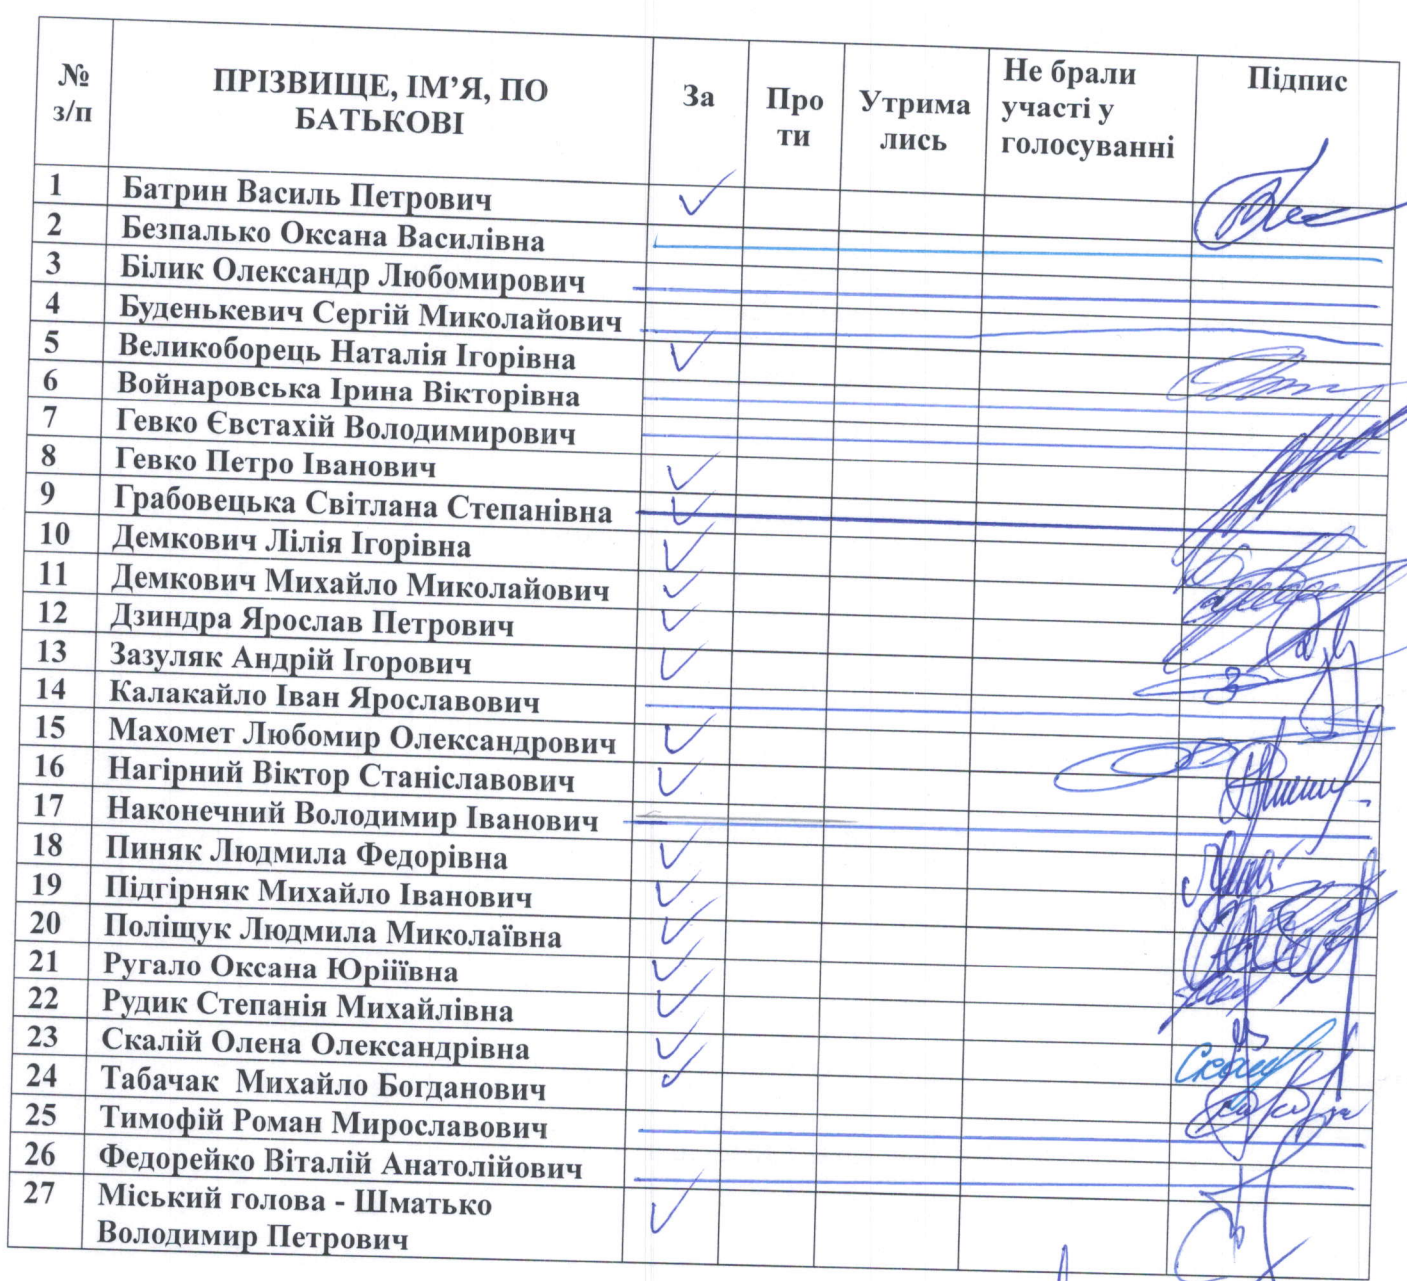 № з/п ПРІЗВИЩЕ, ІМ’Я, ПО БАТЬКОВІ За Про ти Утрима лись Не брали участі у голосуванні Підпис
1 Батрин Василь Петрович ✓
2 Безпалько Оксана Василівна
3 Білик Олександр Любомирович
4 Буденькевич Сергій Миколайович
5 Великоборець Наталія Ігорівна ✓
6 Войнаровська Ірина Вікторівна
7 Гевко Євстахій Володимирович
8 Гевко Петро Іванович ✓
9 Грабовецька Світлана Степанівна ✓
10 Демкович Лілія Ігорівна ✓
11 Демкович Михайло Миколайович ✓
12 Дзиндра Ярослав Петрович ✓
13 Зазуляк Андрій Ігорович ✓
14 Калакайло Іван Ярославович
15 Махомет Любомир Олександрович ✓
16 Нагірний Віктор Станіславович ✓
17 Наконечний Володимир Іванович
18 Пиняк Людмила Федорівна ✓
19 Підгірняк Михайло Іванович ✓
20 Поліщук Людмила Миколаївна ✓
21 Ругало Оксана Юріїівна ✓
22 Рудик Степанія Михайлівна ✓
23 Скалій Олена Олександрівна ✓
24 Табачак Михайло Богданович ✓
25 Тимофій Роман Мирославович
26 Федорейко Віталій Анатолійович
27 Міський голова - Шматько ✓
Володимир Петрович